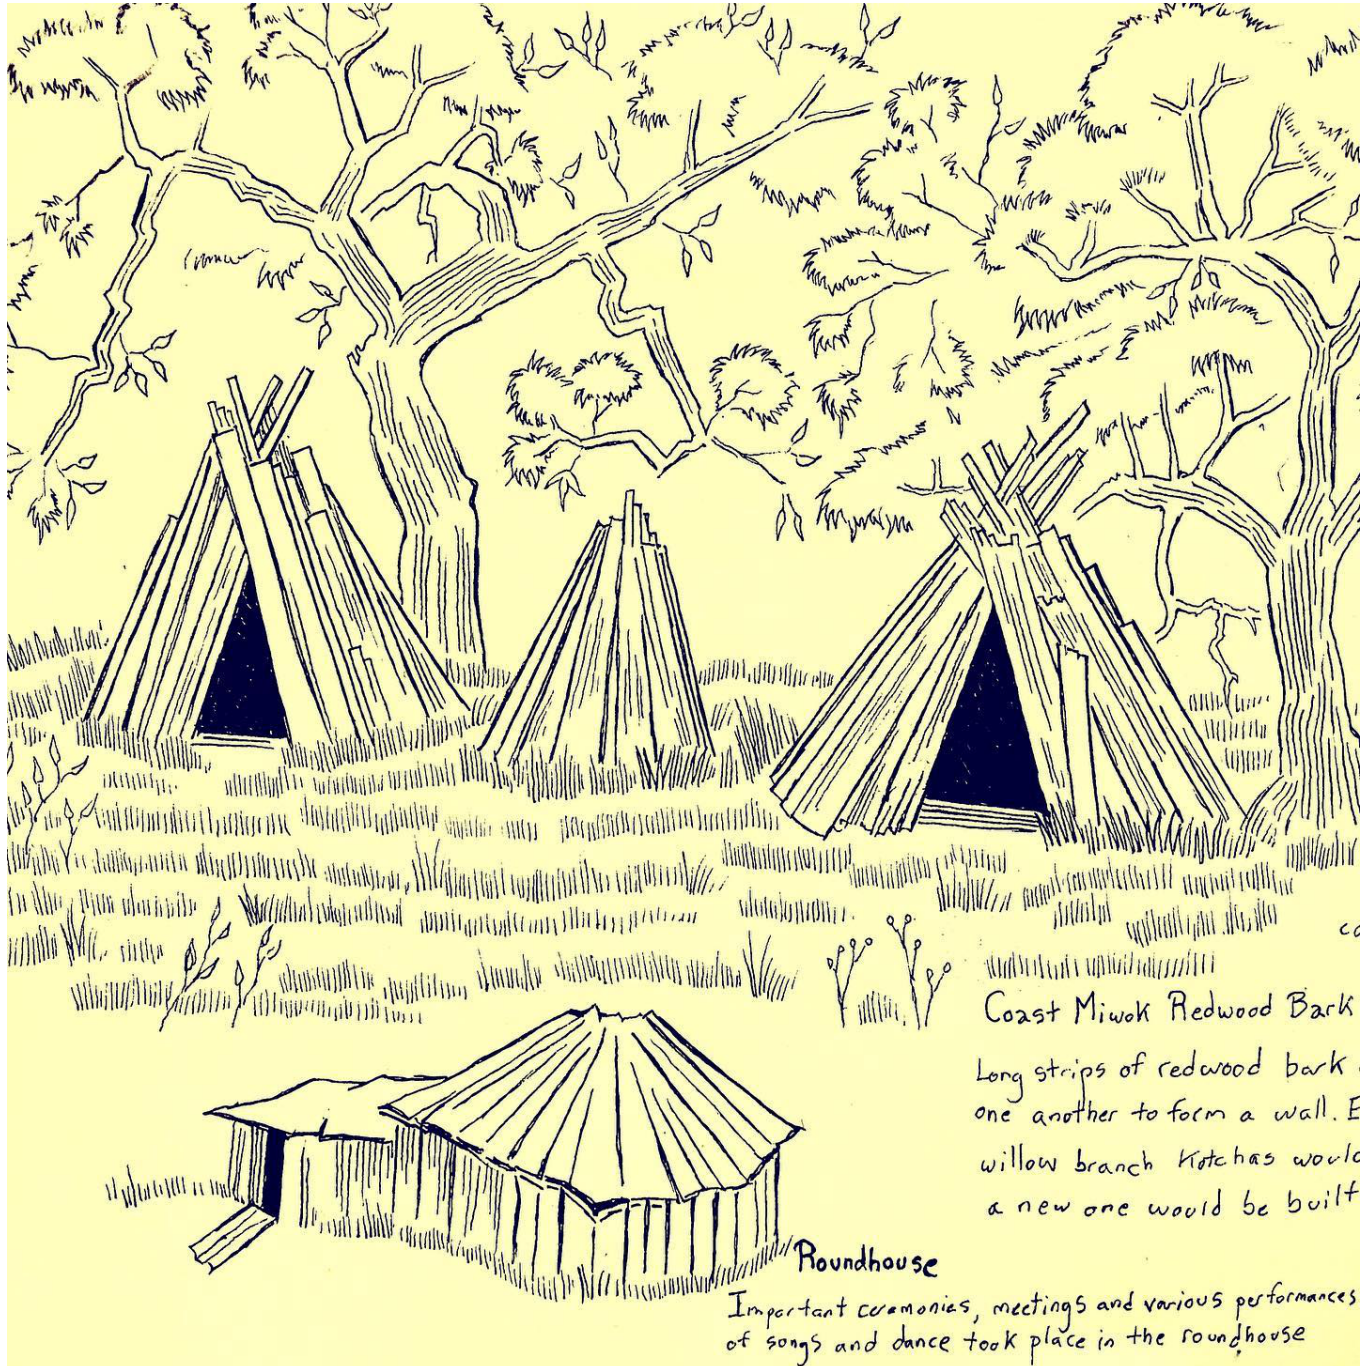 Coast Miwok Redwood Bark
Long strips of redwood bark
one another to form a wall.
willow branch Kotchas would
a new one would be built
Roundhouse
Important ceremonies, meetings and various performances
of songs and dance took place in the roundhouse